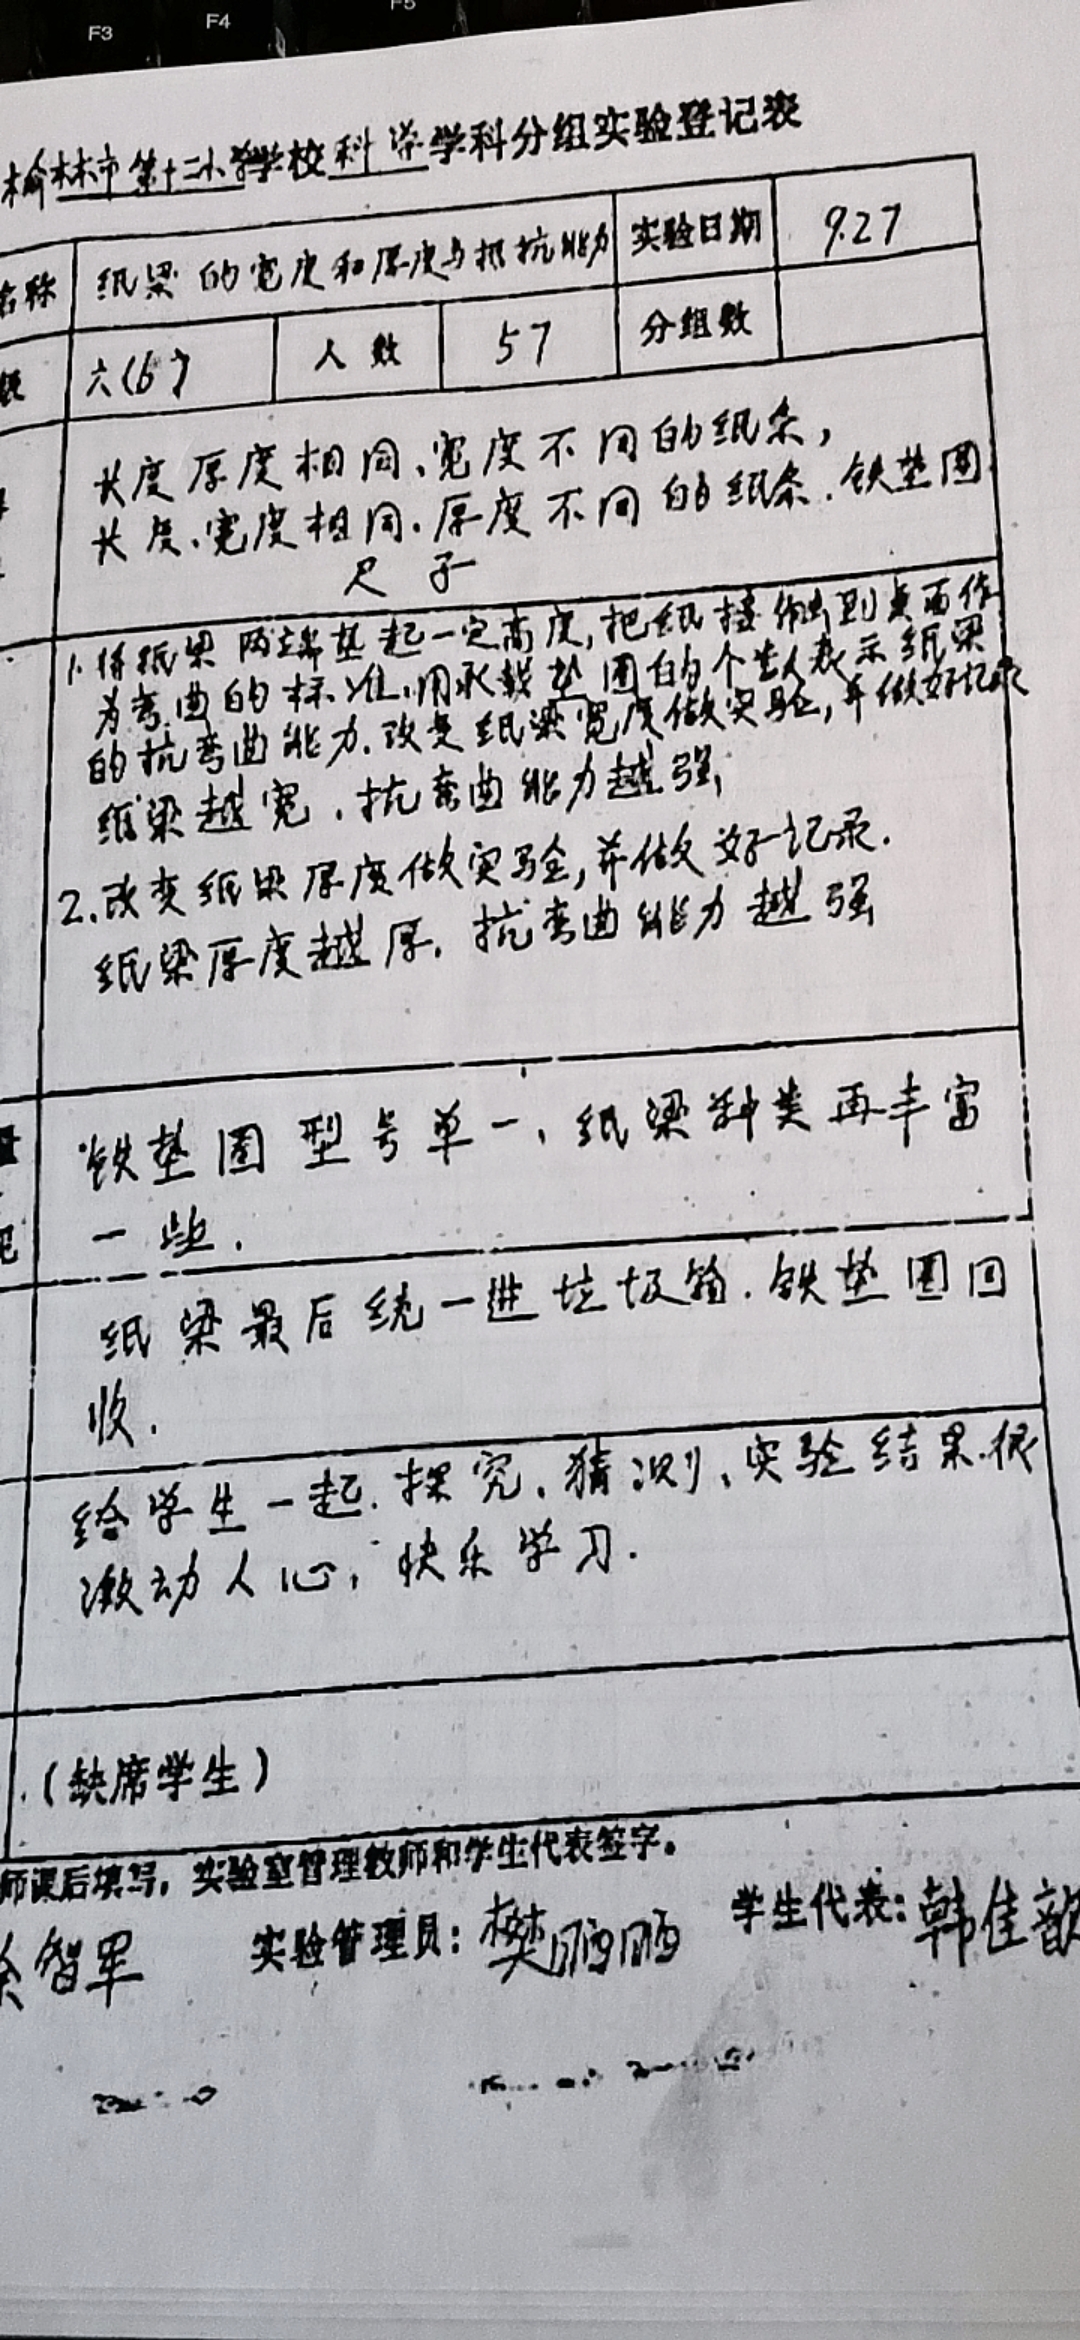 F3 F4 F5
榆林市第十二小学学校科学学科分组实验登记表
名称 纸梁的宽度和厚度与抵抗能力 实验日期 9.27
级 六(6) 人数 57 分组数
长度厚度相同、宽度不同的纸条,
长度、宽度相同.厚度不同的纸条.铁垫圈
尺子
1.将纸梁两端垫起一定高度,把纸接触到桌面作
为弯曲的标准.用承载垫圈的个数表示纸梁
的抗弯曲能力.改变纸梁宽度做实验,并做好记录
纸梁越宽.抗弯曲能力越强,
2.改变纸梁厚度做实验,并做好记录.
纸梁厚度越厚.抗弯曲能力越强
铁垫圈型号单一,纸梁种类再丰富
一些.
纸梁最后统一进垃圾箱.铁垫圈回
收.
给学生一起.探究、猜测、实验结果.很
激动人心,快乐学习.
(缺席学生)
师课后填写,实验室管理教师和学生代表签字。
智军 实验管理员:樊鹏鹏 学生代表:韩佳歆